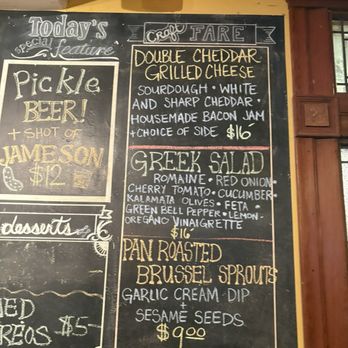 Today's
special feature
Pickle
BEER!
+ SHOT OF
JAMESON
$12
desserts
REOS $5-
Craft FARE
DOUBLE CHEDDAR
GRILLED CHEESE
SOURDOUGH • WHITE
AND SHARP CHEDDAR •
HOUSEMADE BACON JAM
+ CHOICE OF SIDE $16
GREEK SALAD
ROMAINE • RED ONION •
CHERRY TOMATO • CUCUMBER •
KALAMATA OLIVES • FETA •
GREEN BELL PEPPER • LEMON-
OREGANO VINAIGRETTE
$16
PAN ROASTED
BRUSSEL SPROUTS
GARLIC CREAM DIP
+
SESAME SEEDS
$9.00